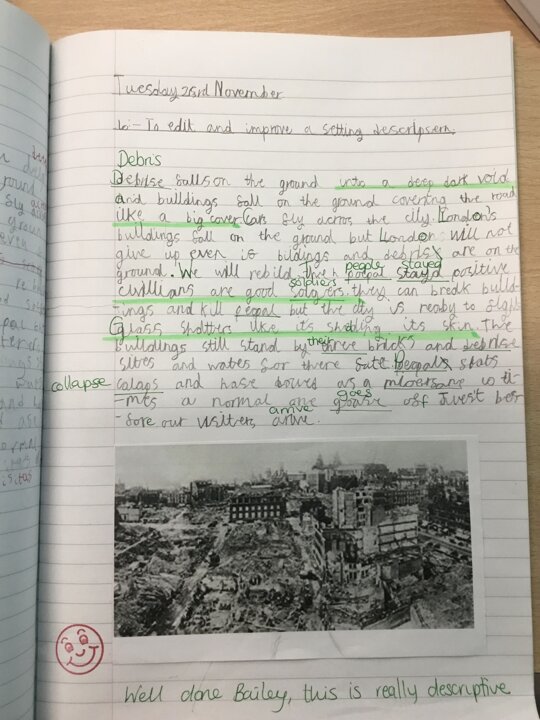 Tuesday 23rd November
Lo:- To edit and improve a setting descripsern
Debris
Debrise falls on the ground into a deep dark void
and buildings fall on the ground covering the road
like a big cover. Cars fly across the city. London's
buildings fall on the ground but London will not
give up even is bildings and debris are on the
people stayed
ground. We will rebild the popal stayd positive
soldiers
Civillians are good solgers. they can break build
-ings and kill pepal but the city is ready to fight
Glass shatters like its shedding its skin. The
their
buildings still stand by three bricks and debrise
slies and wates for there fate Pepals flats
collapse
calaps and have
a normal one goase off just bef
goes
arrive
-fore out arive.
Well done Bailey, this is really descriptive